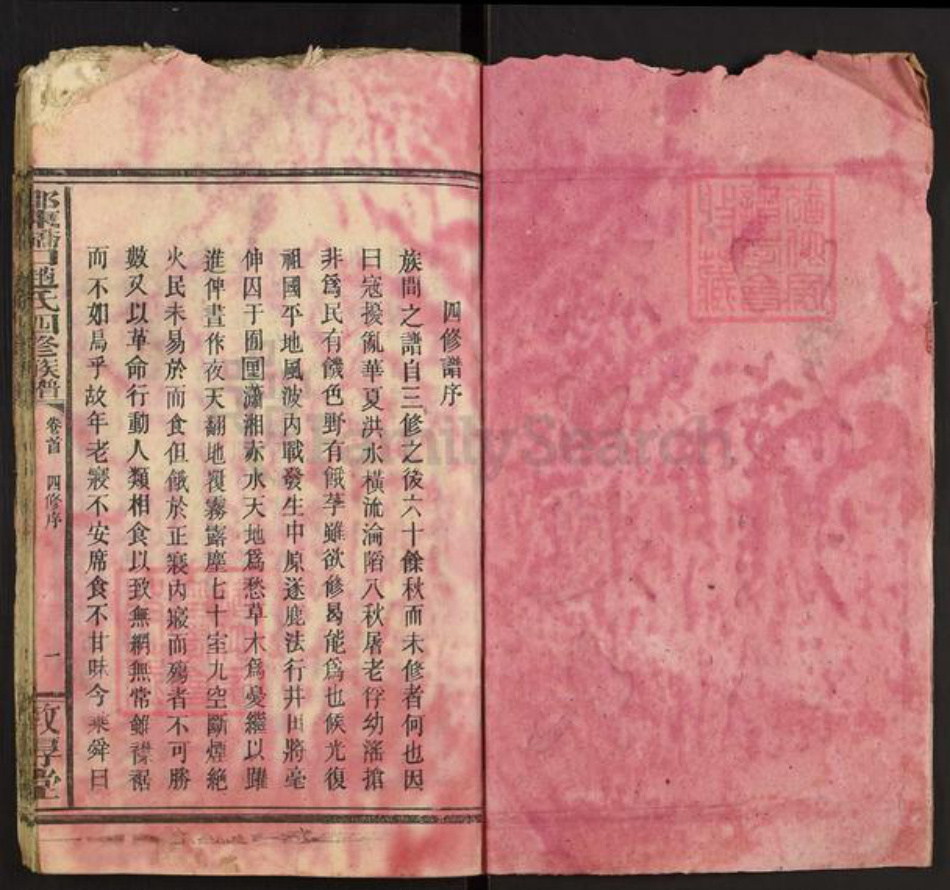 四修譜序
族間之譜自三修之後六十餘秋而未修者何也因
日寇擾亂華夏洪水橫流淪陷八秋屠老俘幼滛搶
非爲民有饑色野有餓莩雖欲修曷能爲也候光復
祖國平地風波內戰發生中原逐鹿法行井田將毫
伸囚于囿里瀟湘赤水天地爲愁草木爲憂繼以躍
進伸晝作夜天翻地覆霧露塵七十室九空斷煙絶
火民未易於而食但餓於正寢內寢而殤者不可勝
數又以革命行動人類相食以致無綱無常雖襟裾
而不如鳥乎故年老寢不安席食不甘味今乘舜日
趙氏四修族譜
卷首 四修序
一
FamilySearch